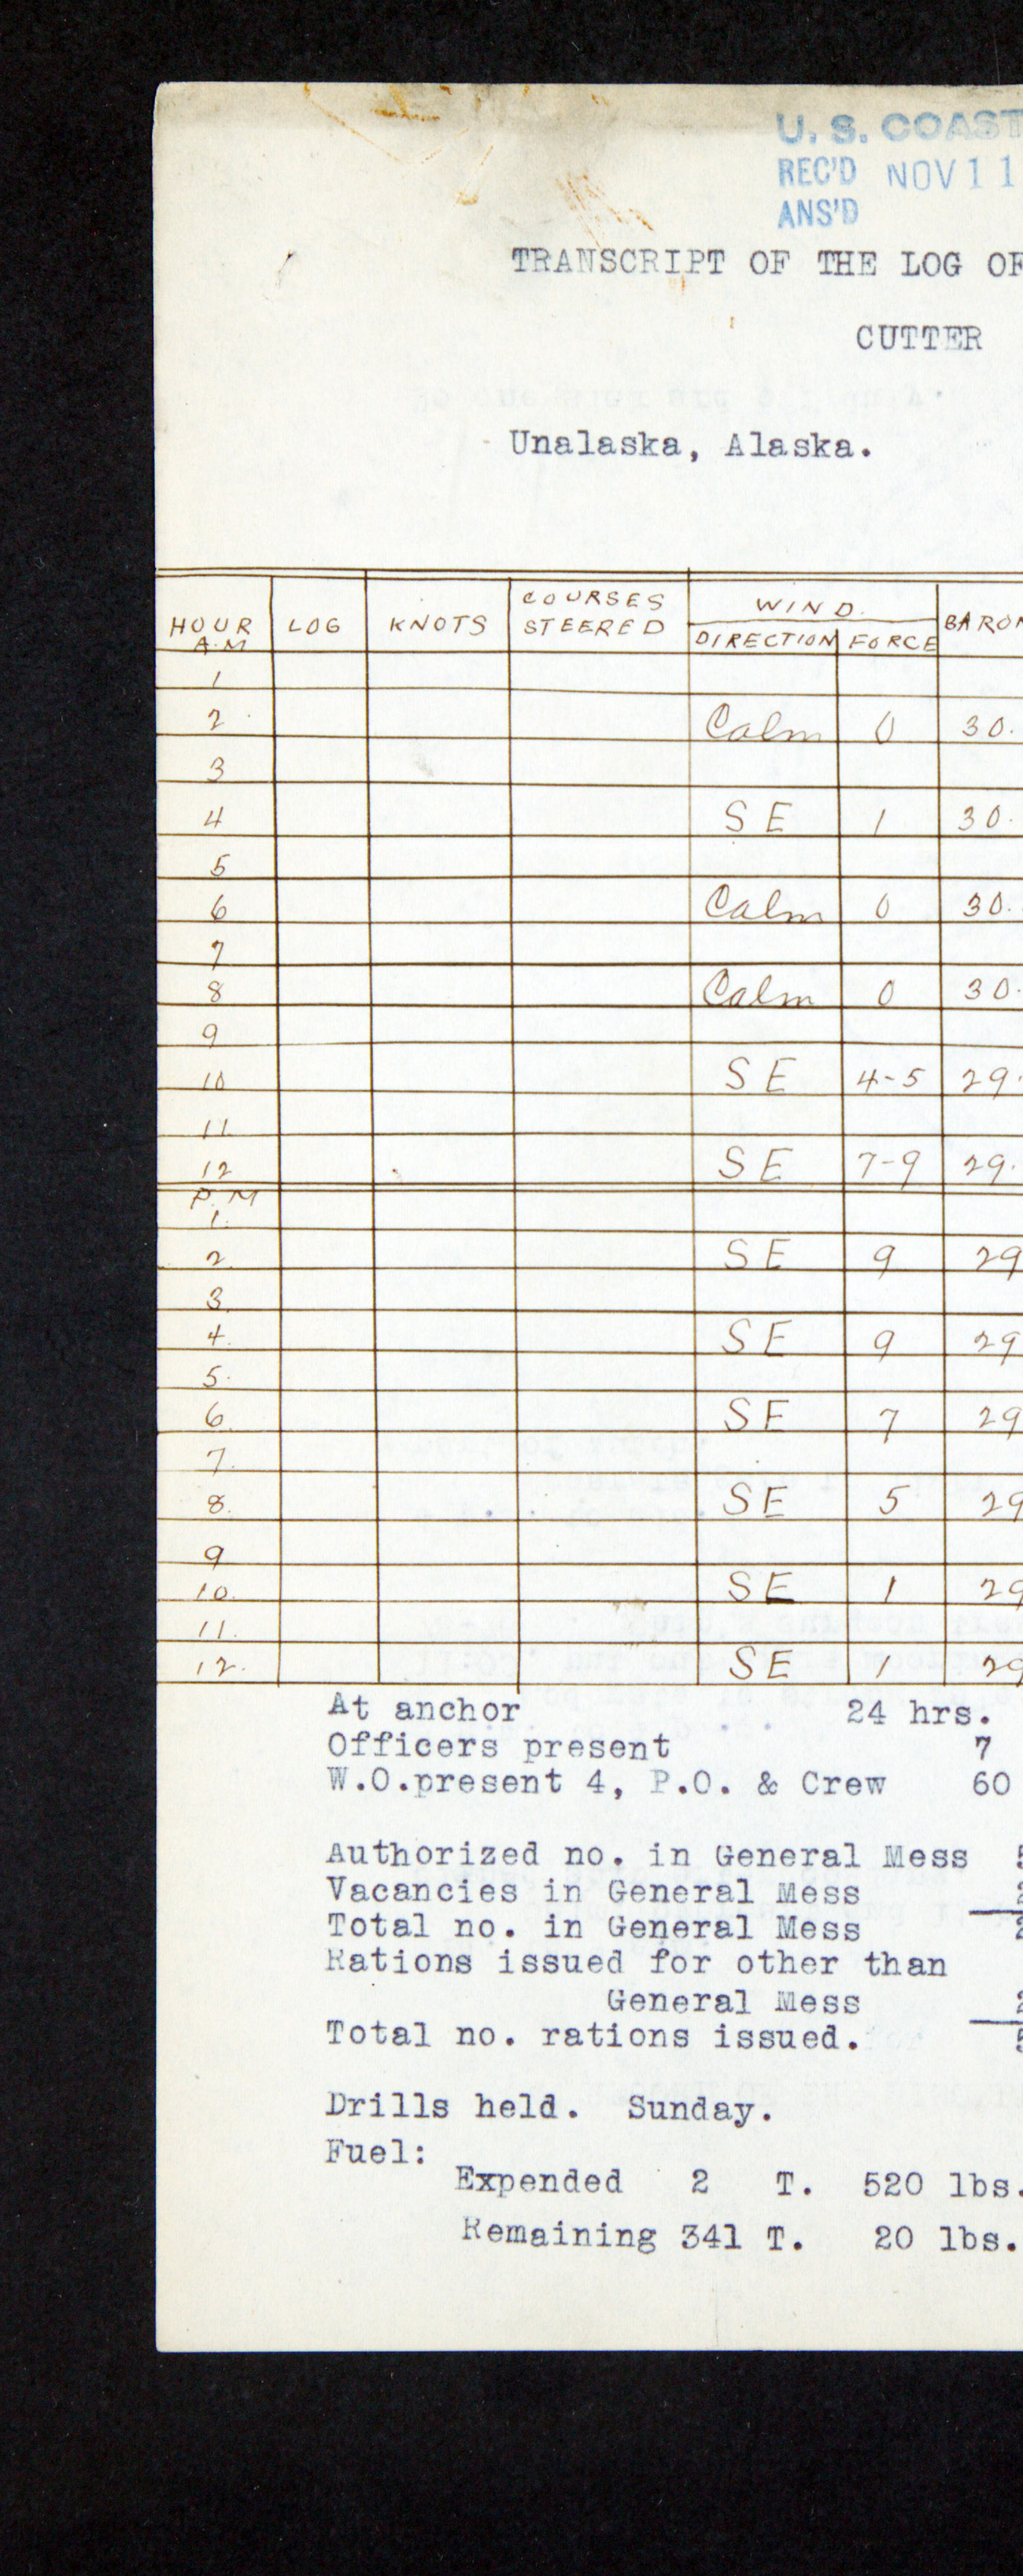 U. S. COAST
REC'D NOV 11
ANS'D
TRANSCRIPT OF THE LOG OF
CUTTER
Unalaska, Alaska.
HOUR LOG KNOTS COURSES STEERED WIND DIRECTION FORCE BARO
A.M
1
2 Calm 0 30.
3
4 SE 1 30.
5
6 Calm 0 30.
7
8 Calm 0 30.
9
10 SE 4-5 29.
11
12 SE 7-9 29.
P.M
1.
2. SE 9 29
3.
4. SE 9 29
5.
6. SE 7 29
7.
8. SE 5 29
9
10. SE 1 29
11.
12. SE 1 29
At anchor 24 hrs.
Officers present 7
W.O.present 4, P.O. & Crew 60
Authorized no. in General Mess
Vacancies in General Mess
Total no. in General Mess
Rations issued for other than
General Mess
Total no. rations issued.
Drills held. Sunday.
Fuel:
Expended 2 T. 520 lbs.
Remaining 341 T. 20 lbs.